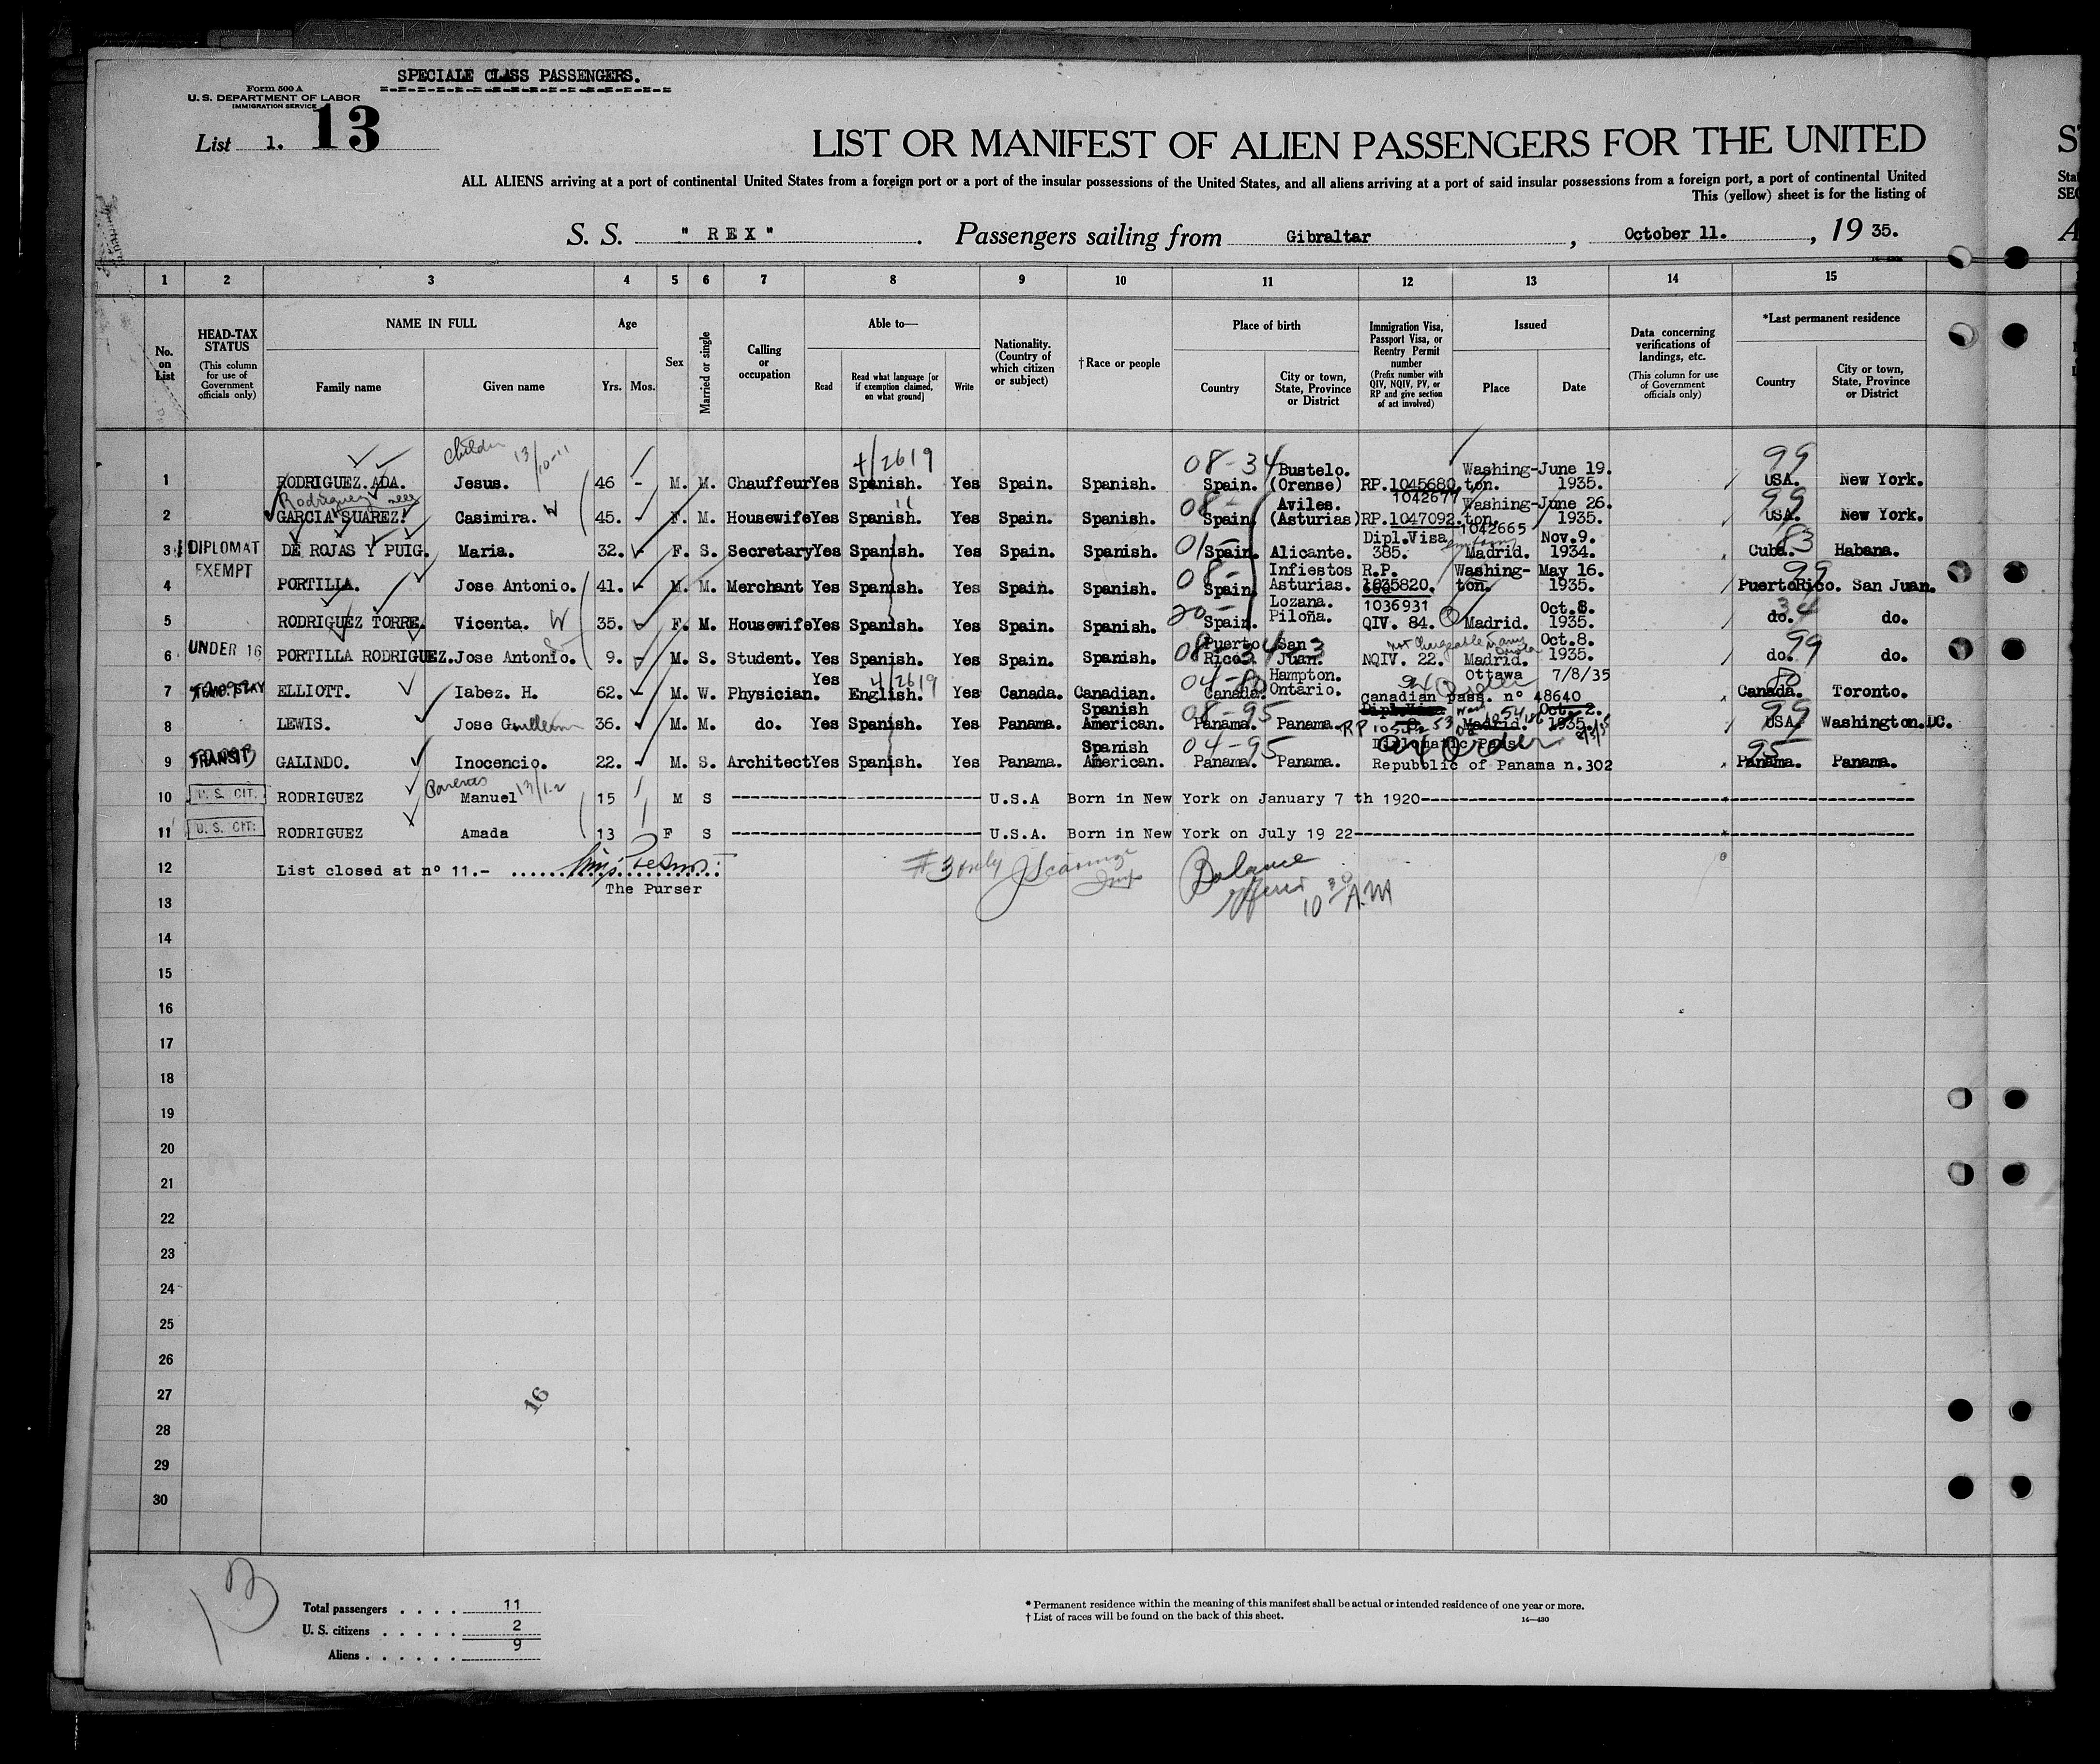 SPECIALE CLASS PASSENGERS.
Form 500 A
U. S. DEPARTMENT OF LABOR
IMMIGRATION SERVICE
List 1. 13
LIST OR MANIFEST OF ALIEN PASSENGERS FOR THE UNITED
ALL ALIENS arriving at a port of continental United States from a foreign port or a port of the insular possessions of the United States, and all aliens arriving at a port of said insular possessions from a foreign port, a port of continental United
This (yellow) sheet is for the listing of
S. S. " REX ". Passengers sailing from Gibraltar, October 11., 19 35.
1 2 3 4 5 6 7 8 9 10 11 12 13 14 15
No. on List
HEAD-TAX STATUS
(This column for use of Government officials only)
NAME IN FULL
Family name Given name
Age
Yrs. Mos.
Sex
Married or single
Calling or occupation
Able to—
Read
Read what language [or if exemption claimed, on what ground]
Write
Nationality. (Country of which citizen or subject)
†Race or people
Place of birth
Country
City or town, State, Province or District
Immigration Visa, Passport Visa, or Reentry Permit number
(Prefix number with QIV, NQIV, PV, or RP and give section of act involved)
Issued
Place Date
Data concerning verifications of landings, etc.
(This column for use of Government officials only)
*Last permanent residence
Country
City or town, State, Province or District
13/10-11 4/2619 08-34 99
1 RODRIGUEZ.ADA. Jesus. 46 - M. M. Chauffeur Yes Spanish. Yes Spain. Spanish. Spain. Bustelo. (Orense) RP.1045680 Washing-ton. June 19. 1935. USA. New York.
Rodriguez 1042677 08- 99
2 GARCIA SUAREZ. Casimira. W 45. - F. M. Housewife Yes Spanish. Yes Spain. Spanish. Spain. Aviles. (Asturias) RP.1047092. Washing-ton. June 26. 1935. USA. New York.
1042665 01- 83
3 DIPLOMAT DE ROJAS Y PUIG. Maria. 32. - F. S. Secretary Yes Spanish. Yes Spain. Spanish. Spain. Alicante. Dipl.Visa 385. Madrid. Nov.9. 1934. Cuba. Habana.
EXEMPT
4 PORTILLA. Jose Antonio. 41. - M. M. Merchant Yes Spanish. Yes Spain. Spanish. Spain. Infiestos Asturias. R.P. 1035820. Washing-ton. May 16. 1935. PuertoRico. San Juan.
1036931 20- 34
5 RODRIGUEZ TORRE. Vicenta. W 35. - F. M. Housewife Yes Spanish. Yes Spain. Spanish. Spain. Lozana. Piloña. QIV. 84. Madrid. Oct.8. 1935. do. do.
UNDER 16
6 PORTILLA RODRIGUEZ. Jose Antonio. 9. - M. S. Student. Yes Spanish. Yes Spain. Spanish. Puerto Rico. San Juan. NQIV. 22. Madrid. Oct.8. 1935. do. do.
4/2619
7 ELLIOTT. Iabez. H. 62. - M. W. Physician. Yes English. Yes Canada. Canadian. Canada. Hampton. Ontario. canadian pass. nº 48640 Ottawa 7/8/35 Canada. Toronto.
08-95 99
8 LEWIS. Jose Guillermo 36. M. M. do. Yes Spanish. Yes Panama. Spanish American. Panama. Panama. RP Madrid. Oct. 2. 1935. USA. Washington.DC.
04-95 95
9 TRANSIT GALINDO. Inocencio. 22. M. S. Architect Yes Spanish. Yes Panama. Spanish American. Panama. Panama. Diplomatic Pass. Repubblic of Panama n.302 Panama. Panama.
10 U. S. CIT. RODRIGUEZ Manuel 15 M S U.S.A Born in New York on January 7 th 1920
11 U. S. CIT. RODRIGUEZ Amada 13 F S U.S.A. Born in New York on July 19 22
12 List closed at nº 11.- #3 only Balance
The Purser 10 30 A.M
13
14
15
16
17
18
19
20
21
22
23
24
25
26
27
16
28
29
30
13
Total passengers . . . . 11
U. S. citizens . . . . . 2
Aliens . . . . . . 9
* Permanent residence within the meaning of this manifest shall be actual or intended residence of one year or more.
† List of races will be found on the back of this sheet.
14—430